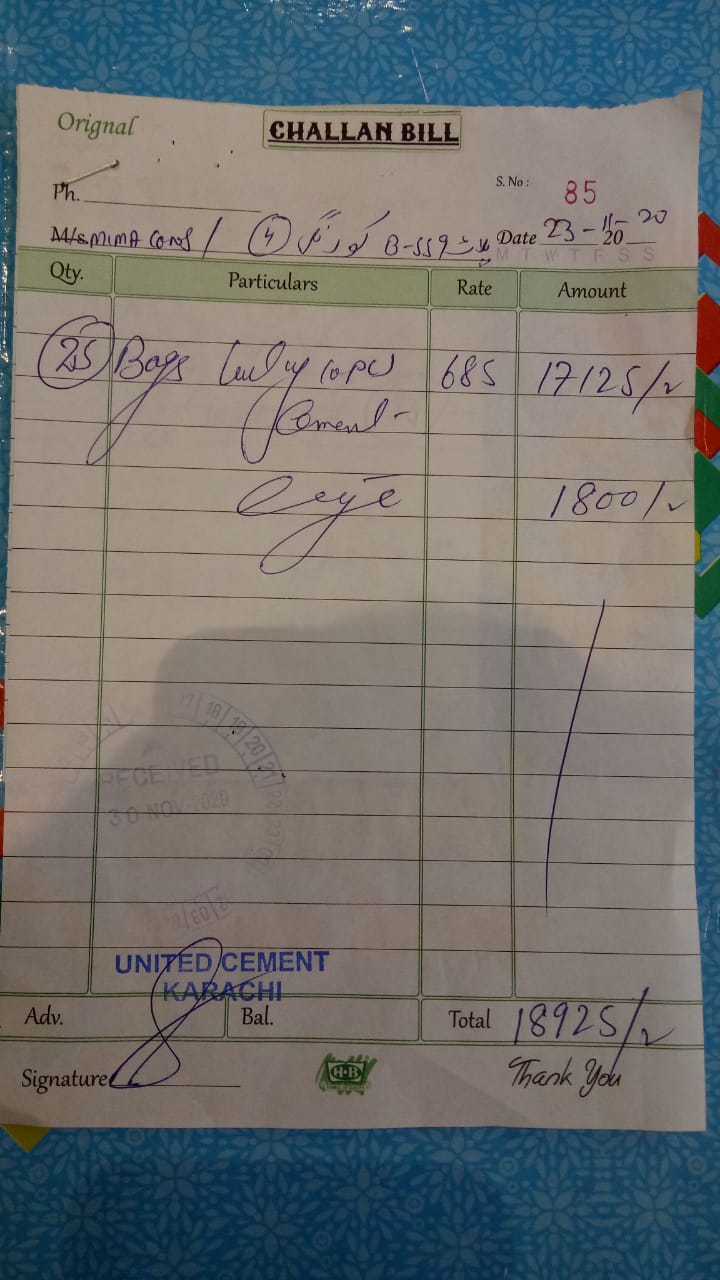 Orignal
CHALLAN BILL
Ph.
S. No : 85
M/s. MIMA CONS / کورنگی (4) B-559 پلاٹ
Date 23-11-2020
M T W T F S S
Qty. Particulars Rate Amount
25 Bags (OPC) 685 17125/-
Cement
1800/-
17 18 19 20 21 22 23
RECEIVED
30 NOV 2020
UNITED CEMENT
KARACHI
Adv. Bal. Total 18925/-
Signature
H-B
Thank You